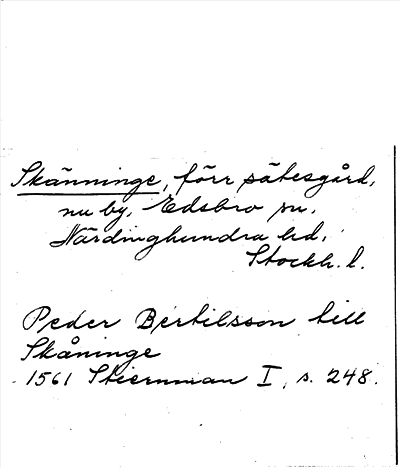 Skänninge, förr sätesgård,
nu by, Edsbro sn,
Närdinghundra hd,
Stockh. l.
Peder Bertilsson till
Skåninge
1561 Stiernman I, s. 248.